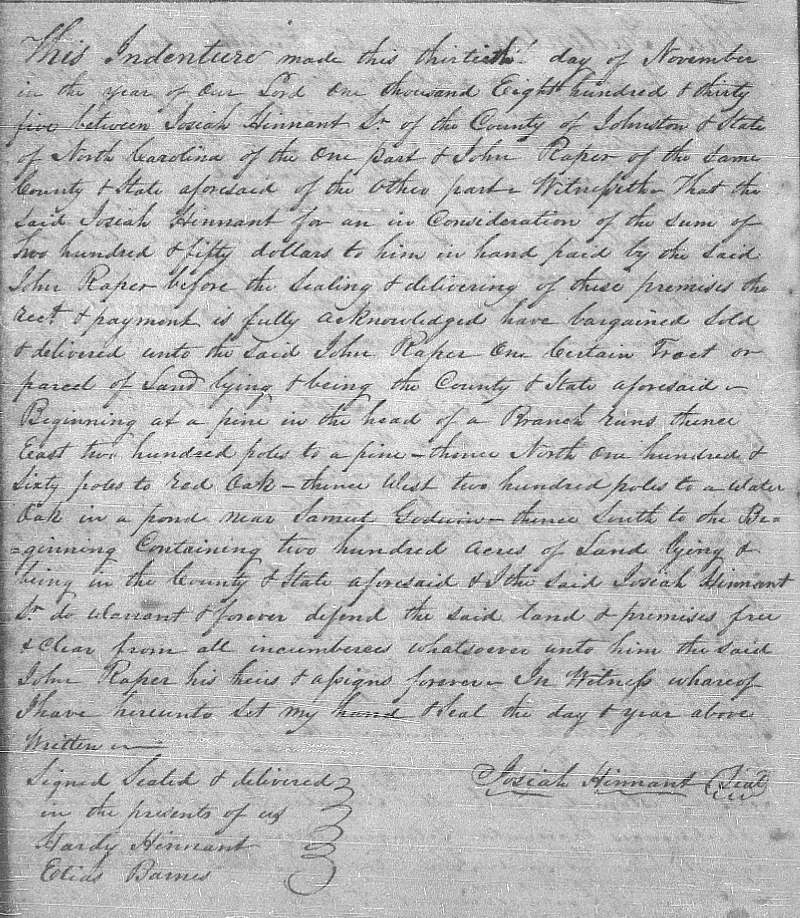 This Indenture made this thirtieth day of November
in the year of our Lord one thousand Eight hundred & thirty
five between Josiah Hinnant Sr. of the County of Johnston & State
of North Carolina of the one part & John Raper of the Same
County & State aforesaid of the other part Witnesseth That the
Said Josiah Hinnant for an in Consideration of the Sum of
two hundred & fifty dollars to him in hand paid by the Said
John Raper before the Sealing & delivering of these premises the
rect. & payment is fully acknowledged have bargained Sold
& delivered unto the Said John Raper One Certain Tract or
parcel of Land lying & being the County & State aforesaid
Beginning at a pine in the head of a Branch runs thence
East two hundred poles to a pine - thence North One hundred &
Sixty poles to red Oak - thence West two hundred poles to a Water
Oak in a pond near Samuel Godwin - thence South to the Be=
=ginning Containing two hundred acres of Land lying &
being in the County & State aforesaid & I the Said Josiah Hinnant
Sr. do warrant & forever defend the Said land & premises free
& clear from all incumberces whatsoever unto him the Said
John Raper his heirs & assigns forever In Witness whareof
I have hereunto Set my hand & Seal the day & year above
Written
Signed Sealed & delivered Josiah Hinnant (Seal)
in the presents of us
Hardy Hinnant
Barnes